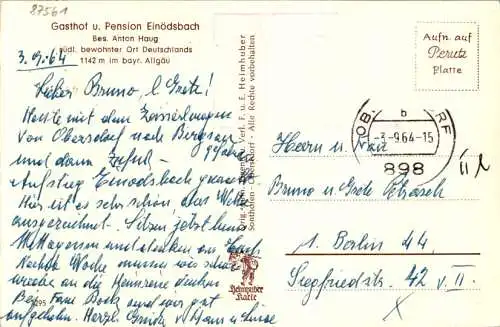 27561
Gasthof u. Pension Einödsbach
Bes. Anton Haug
südl. bewohnter Ort Deutschlands
1142 m im bayr. Allgäu
3.9.64
Lieber Bruno, l. Grete!
Heute mit dem
von Oberstdorf nach
und dann
Aufstieg Einodsbach gemacht
Hier ist es sehr schön das Wetter
ausgezeichnet. Sitzen jetzt beim
Mittagessen und denken an Euch.
Nächste Woche müssen wir schon
wieder an die Heimreise denken
Bes. Frau Bock und gut
aufgehoben. Herzl. Grüße v. Hans u. Luise
Verl. F. u. E. Heimhuber
Sonthofen - Oberstdorf - Alle Rechte vorbehalten
Heimhuber
Karte
Aufn. auf
Perutz
Platte
OB RF
b
-3.-9.64-15
898
Herrn u. Frau
Bruno u. Grete
1. Berlin 44
Siegfriedstr. 42 v. II.